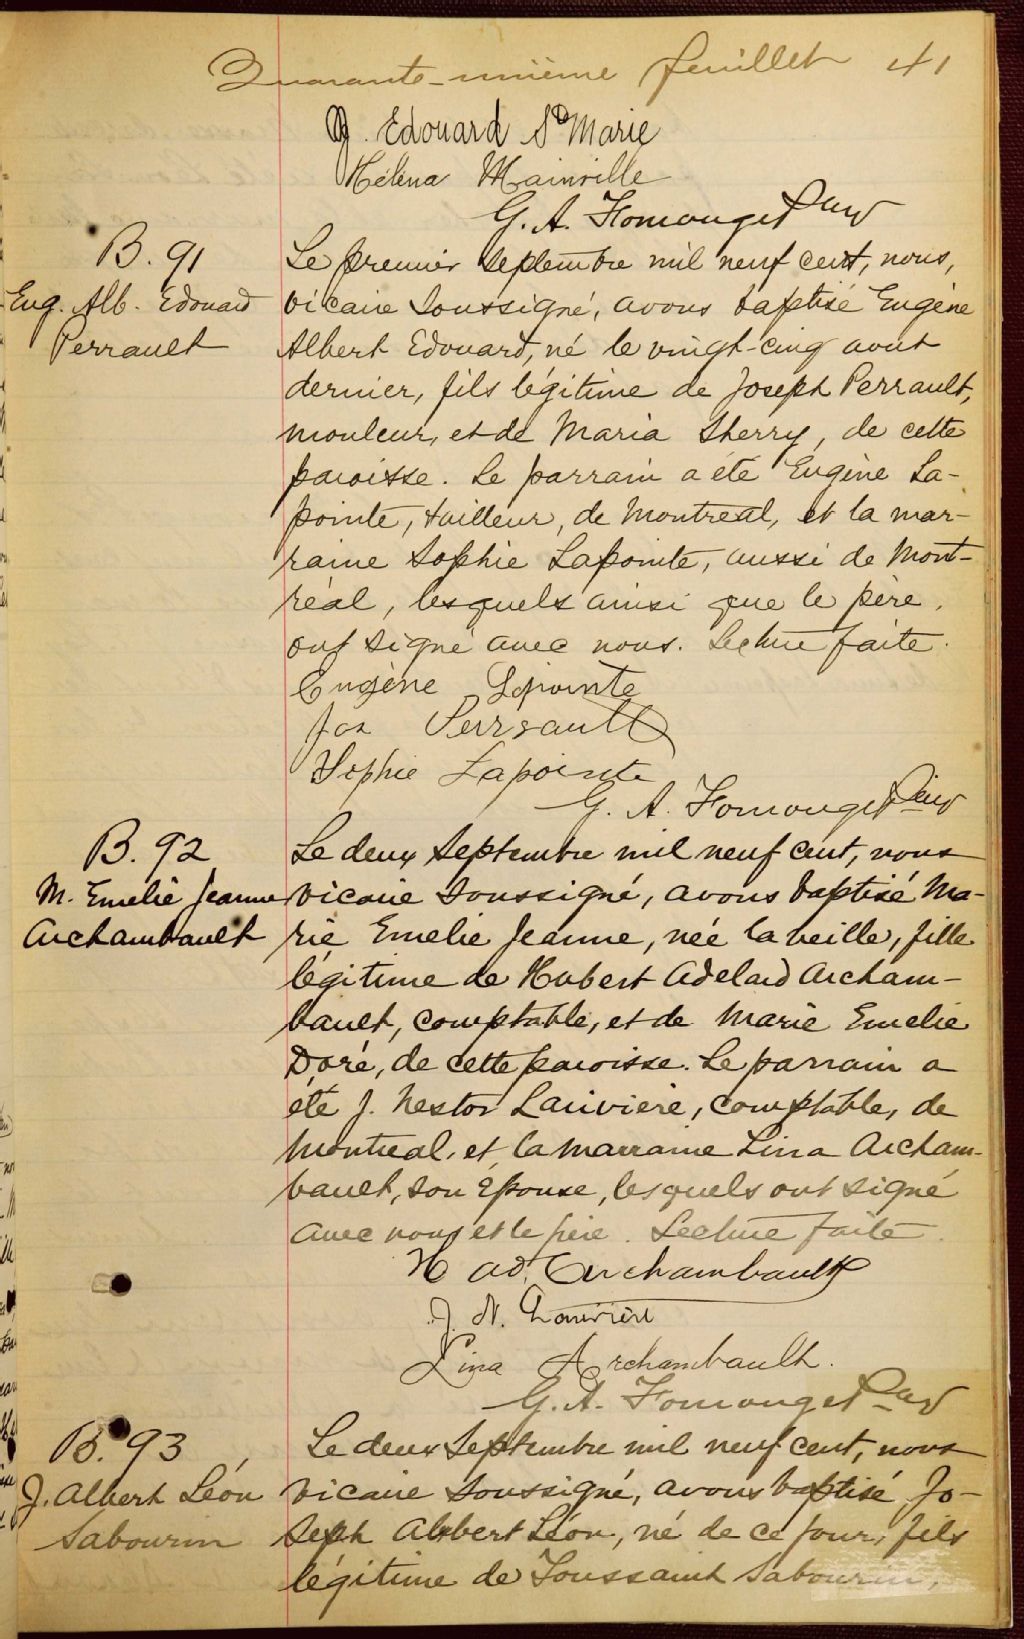 Quarante-unième feuillet 41
J. Edouard Ste Marie
Héléna Mainville
G. A. Ptre
B. 91
Eug. Alb. Edouard
Perrault
Le premier septembre mil neuf cent, nous,
vicaire soussigné, avons baptisé Eugène
Albert Edouard, né le vingt-cinq aout
dernier, fils légitime de Joseph Perrault,
mouleur, et de Maria Sherry, de cette
paroisse. Le parrain a été Eugène La-
pointe, tailleur, de Montreal, et la mar-
raine Sophie Lapointe, aussi de Mont-
réal, lesquels ainsi que le père,
ont signé avec nous. Lecture faite.
Eugène Lapointe
Jos Perrault
Sophie Lapointe
G. A. Ptre
B. 92
M. Emelie Jeanne
Archambault
Le deux septembre mil neuf cent, nous
vicaire soussigné, avons baptisé Ma-
rie Emelie Jeanne, née la veille, fille
légitime de Hubert Adelard Archam-
bault, comptable, et de Marie Emelie
Doré, de cette paroisse. Le parrain a
été J. Nestor Larivière, comptable, de
Montreal, et la marraine Lina Archam-
bault, son épouse, lesquels ont signé
avec nous et le père. Lecture faite.
H Ad. Archambault
J. N. Larivière
Lina Archambault.
G. A. Ptre
B. 93
J. Albert Léon
Sabourin
Le deux septembre mil neuf cent, nous
vicaire soussigné, avons baptisé Jo-
seph Albert Léon, né de ce jour, fils
légitime de Toussaint Sabourin,